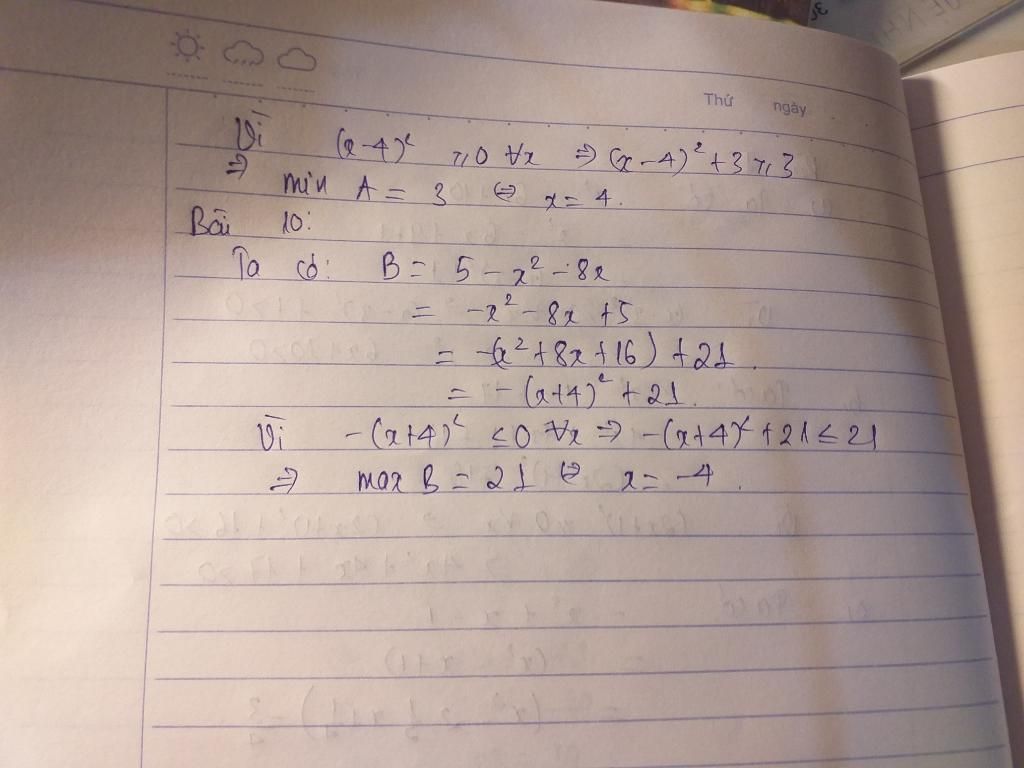 Thứ ngày
Vì (x-4)² ≥ 0 ∀x ⇒ (x-4)² + 3 ≥ 3
⇒ min A = 3 ⇔ x = 4.
Bài 10:
Ta có: B = 5 - x² - 8x
= -x² - 8x + 5
= -(x² + 8x + 16) + 21.
= - (x+4)² + 21.
Vì -(x+4)² ≤ 0 ∀x ⇒ -(x+4)² + 21 ≤ 21
⇒ max B = 21 ⇔ x = -4.